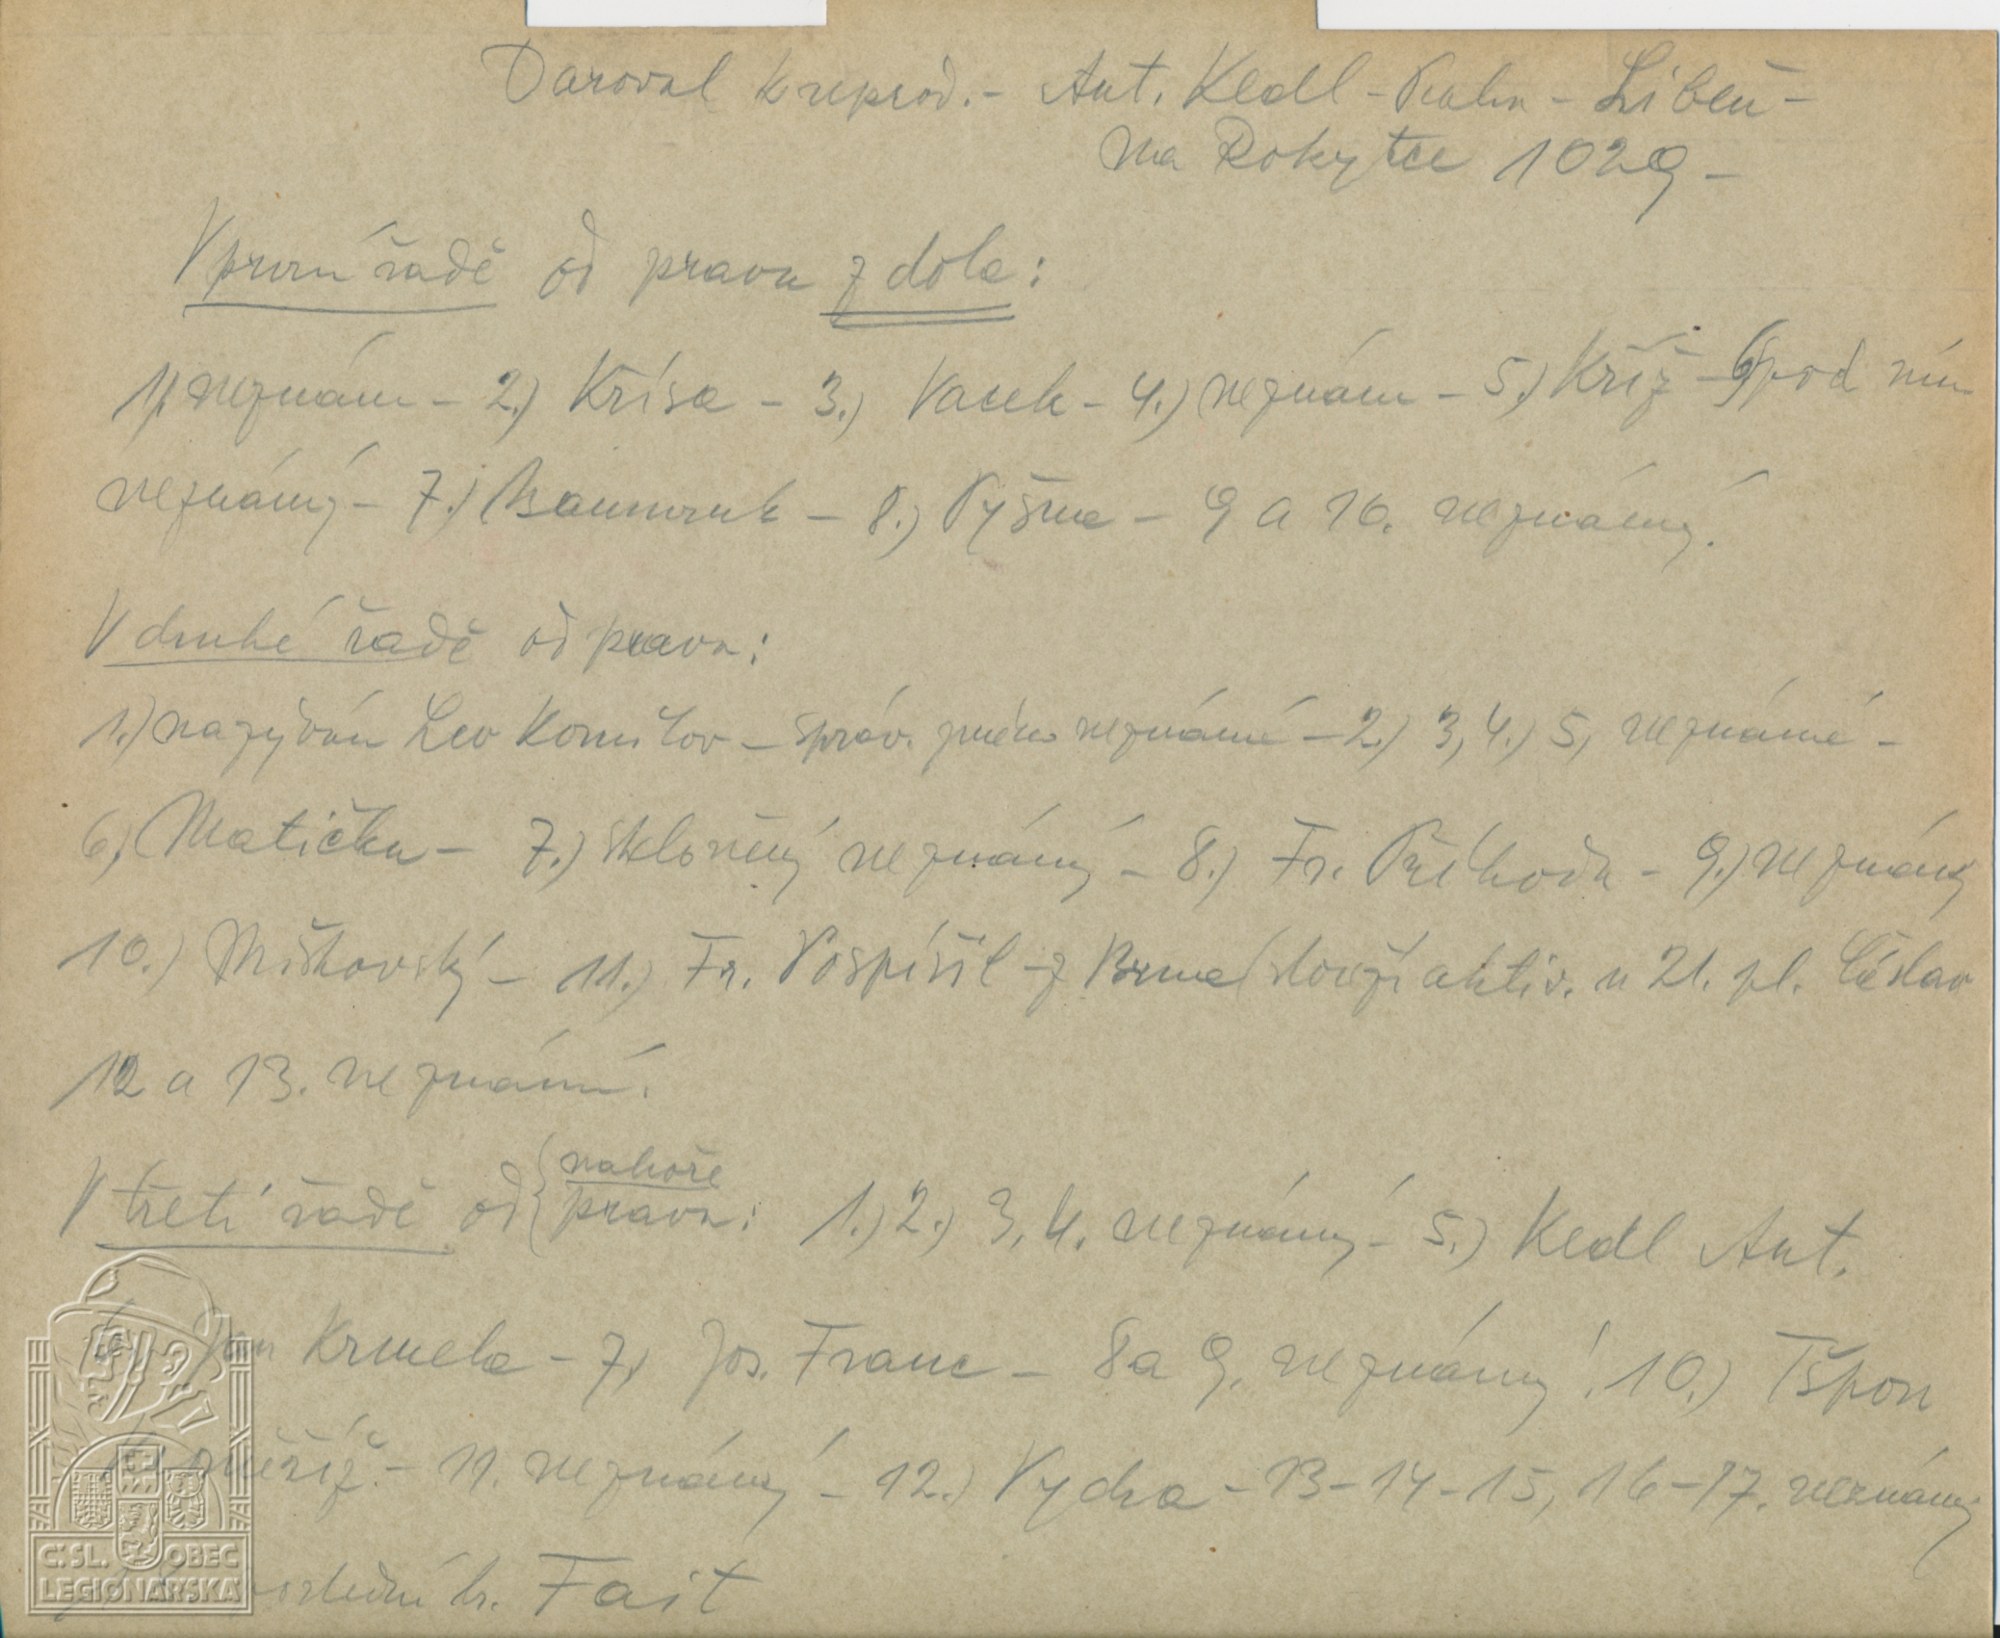 Daroval k reprod. - Ant. Kedl - Praha - Libeň -
na Rokytce 1029 -
V první řadě od prava z dola:
1) neznám - 2.) Krísa - 3.) Vacek - 4.) neznám - 5.) Kříž - 6) pod ním
neznámý - 7.) Baumruk - 8.) Vyšma - 9 a 10. neznámý.
V druhé řadě od prava:
1.) nazýván Lev Kornilov - správ. jméno neznámé - 2.) 3, 4.) 5, neznámé -
6, Matička - 7.) skloněný neznámý - 8.) Fr. Příhoda - 9.) neznámý
10.) Miškovský - 11.) Fr. Pospíšil - z Brna (slouží aktiv. u 21. pl. Čáslav
12 a 13. neznámí.
V třetí řadě od {nahoře prava: 1.) 2.) 3, 4. neznámý - 5.) Kedl Ant.
Jan Krmela - 7, Jos. Franc - 8 a 9. neznámý! 10.) Tšpon
- 11. neznámý - 12.) Vydra - 13 - 14 - 15, 16 - 17. neznámý
poslední br. Fait
Č.SL. OBEC
LEGIONÁŘSKÁ